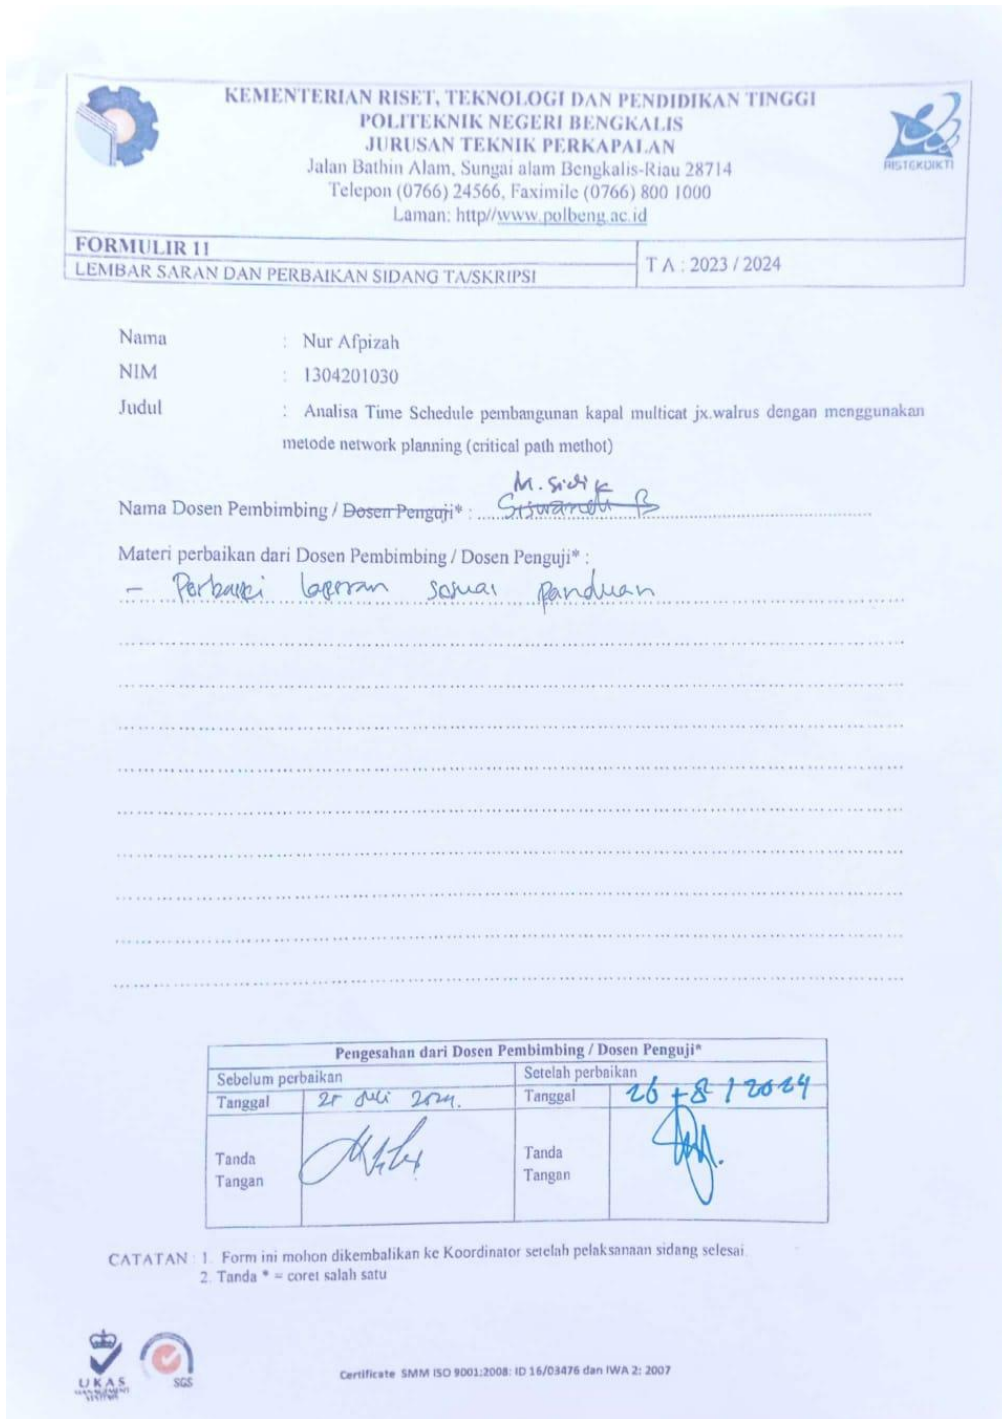 KEMENTERIAN RISET, TEKNOLOGI DAN PENDIDIKAN TINGGI
POLITEKNIK NEGERI BENGKALIS
JURUSAN TEKNIK PERKAPALAN
Jalan Bathin Alam, Sungai alam Bengkalis-Riau 28714
Telepon (0766) 24566, Faximile (0766) 800 1000
Laman: http//www.polbeng.ac.id
RISTEKDIKTI
FORMULIR 11
LEMBAR SARAN DAN PERBAIKAN SIDANG TA/SKRIPSI
T A : 2023 / 2024
Nama : Nur Afpizah
NIM : 1304201030
Judul : Analisa Time Schedule pembangunan kapal multicat jx.walrus dengan menggunakan
metode network planning (critical path methot)
M. Sidik
Nama Dosen Pembimbing / Dosen Penguji* : Siswandi B
Materi perbaikan dari Dosen Pembimbing / Dosen Penguji* :
- Perbaiki laporan sesuai panduan
Pengesahan dari Dosen Pembimbing / Dosen Penguji*
Sebelum perbaikan
Setelah perbaikan
Tanggal Juli 2024.
Tanggal 26 - 8 / 2024
Tanda
Tangan
Tanda
Tangan
CATATAN : 1. Form ini mohon dikembalikan ke Koordinator setelah pelaksanaan sidang selesai.
2. Tanda * = coret salah satu
UKAS
MANAGEMENT
SYSTEMS
SGS
Certificate SMM ISO 9001:2008: ID 16/03476 dan IWA 2: 2007